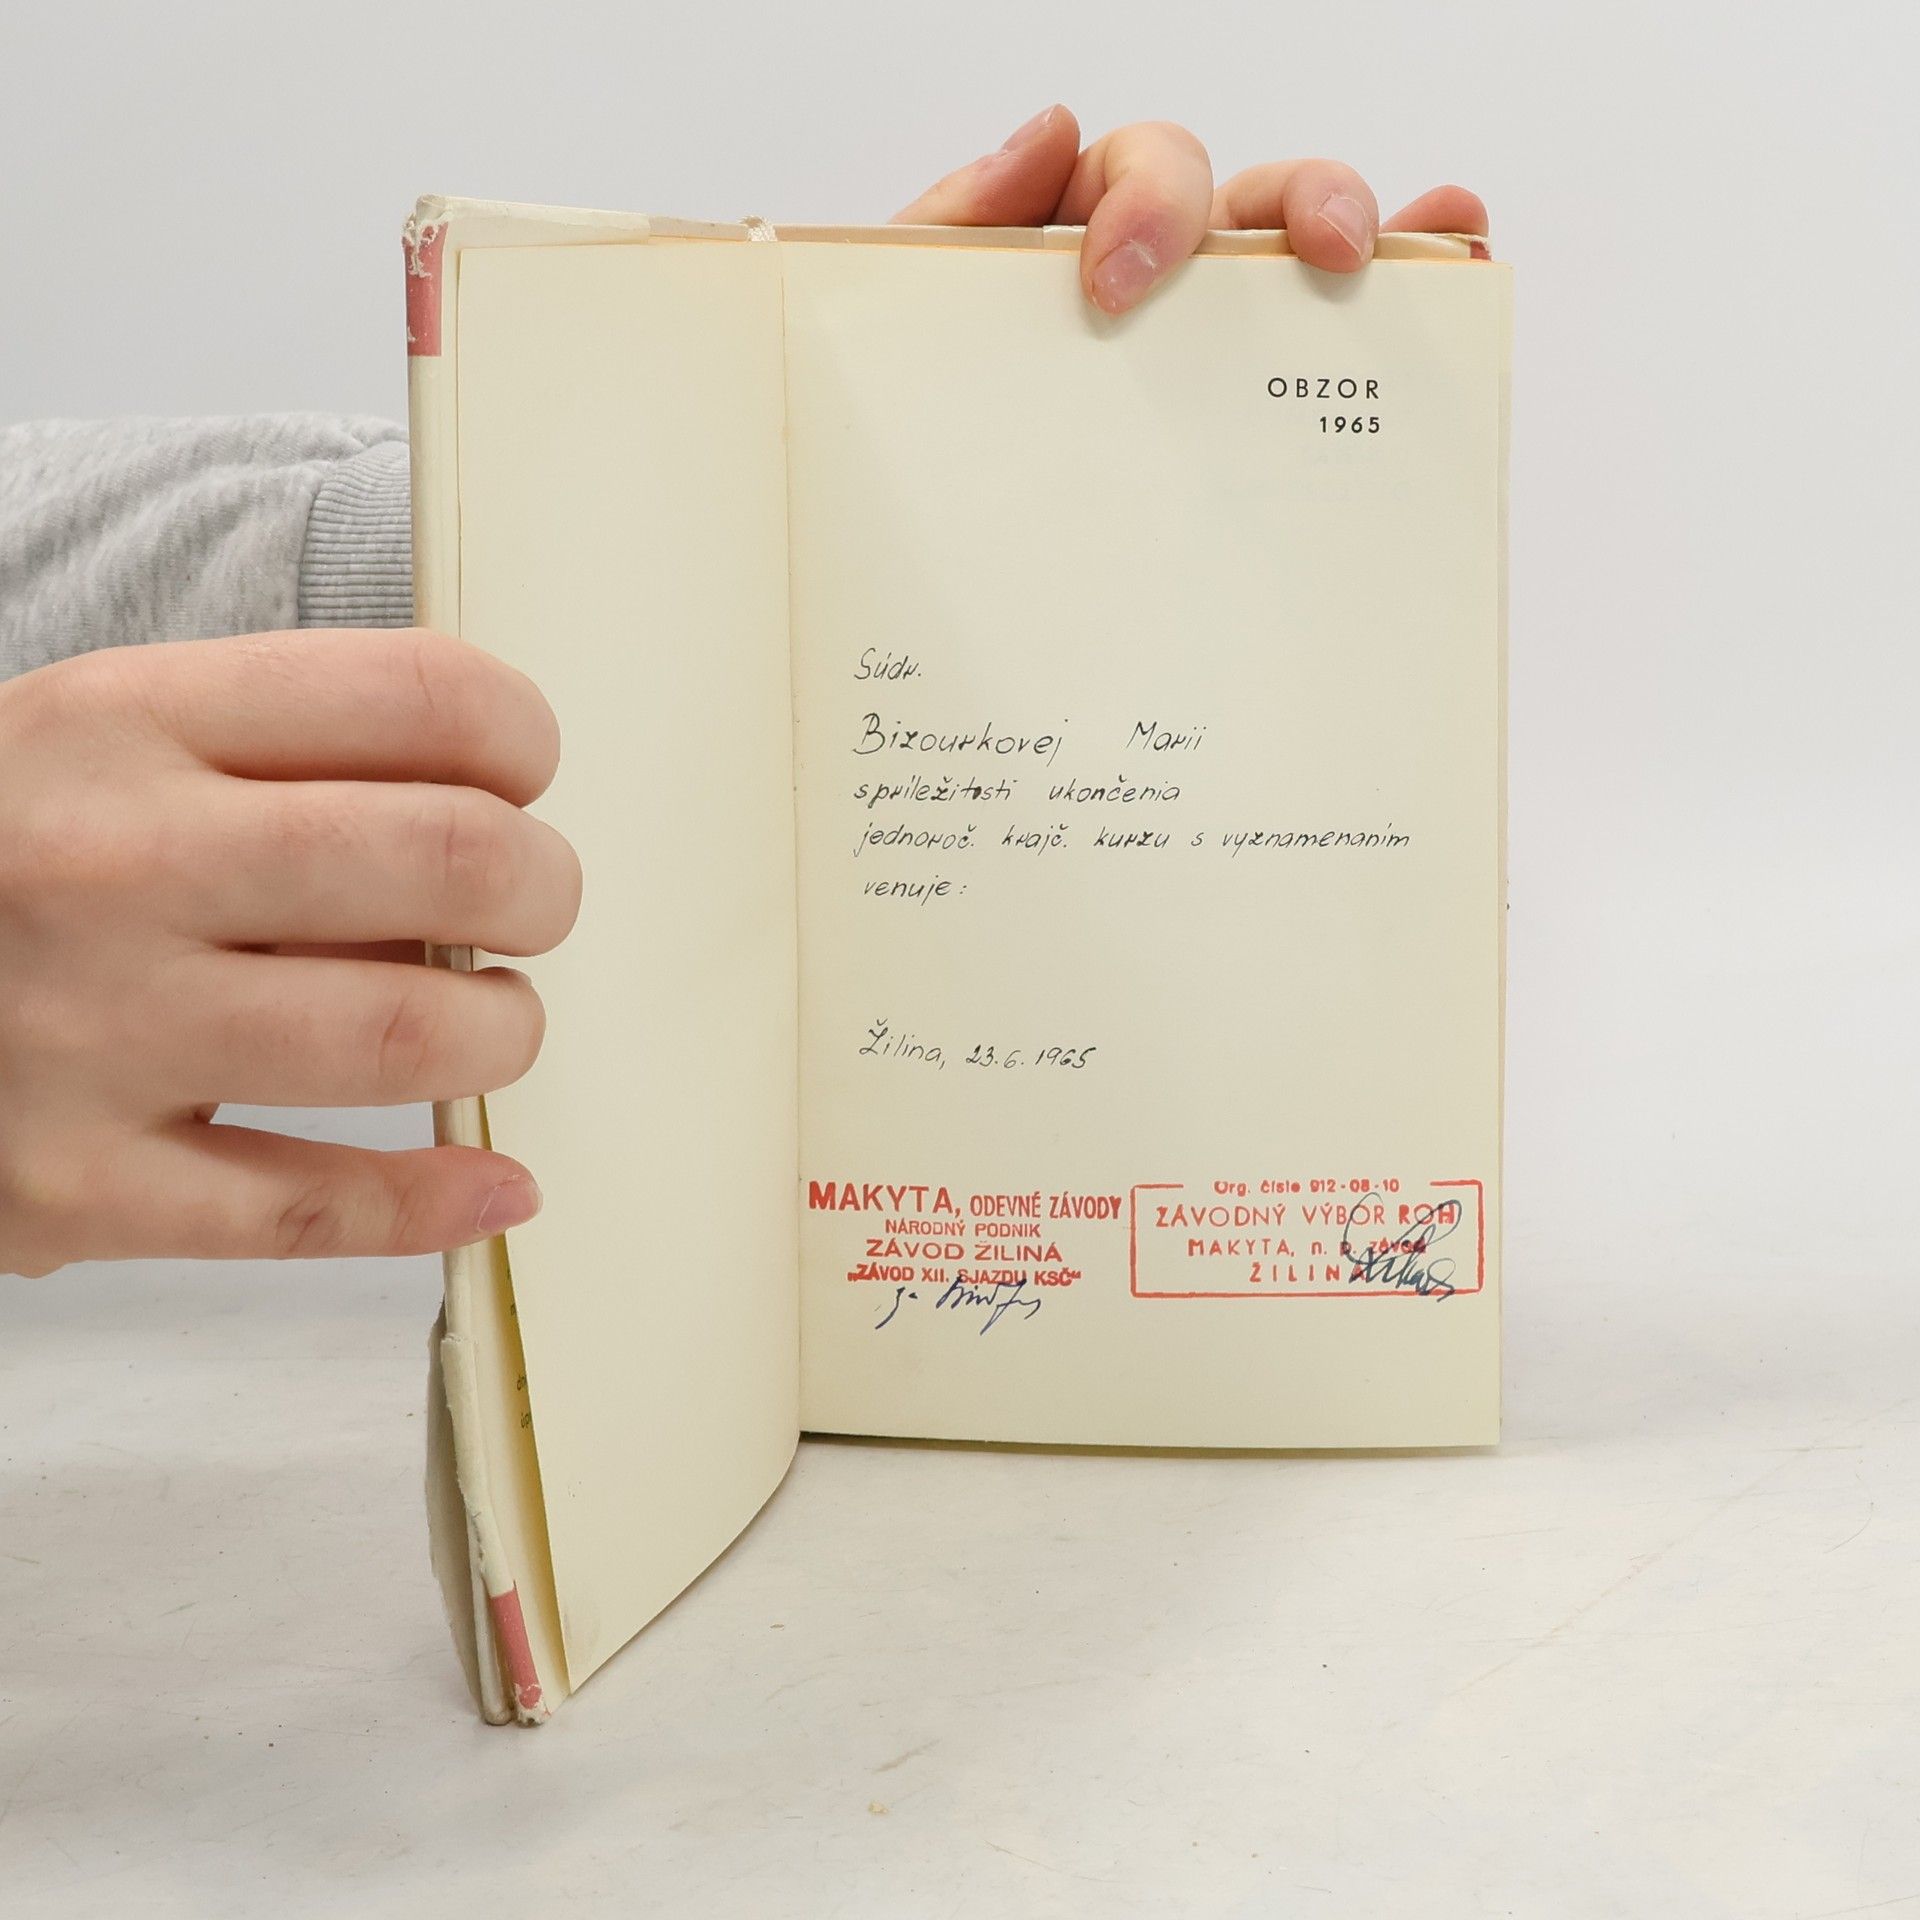 OBZOR
1965
Súdr.
Bizourkovej Marii
spríležitosti ukončenia
jednoroč. krajč. kurzu s vyznamenaním
venuje:
Žilina, 23.6.1965
MAKYTA, ODEVNÉ ZÁVODY
NÁRODNÝ PODNIK
ZÁVOD ŽILINA
„ZÁVOD XII. SJAZDU KSČ“
Org. číslo 912-08-10
ZÁVODNÝ VÝBOR ROH
MAKYTA, n. p. závod
ŽILINA